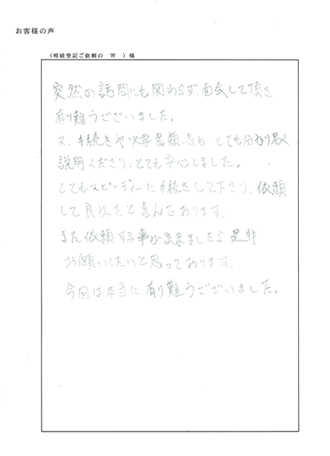 お客様の声
（相続登記ご依頼の W ）様
突然の訪問にも関わらず面会して頂き
有り難うございました。
又、手続きや必要書類等も とても分かり易く
説明くださり、とても安心しました。
とてもスピーディーに手続きして下さり、依頼
して良かったと喜んでおります。
また依頼する事が出来ましたら是非
お願いしたいと思っております。
今回は本当に有り難うございました。